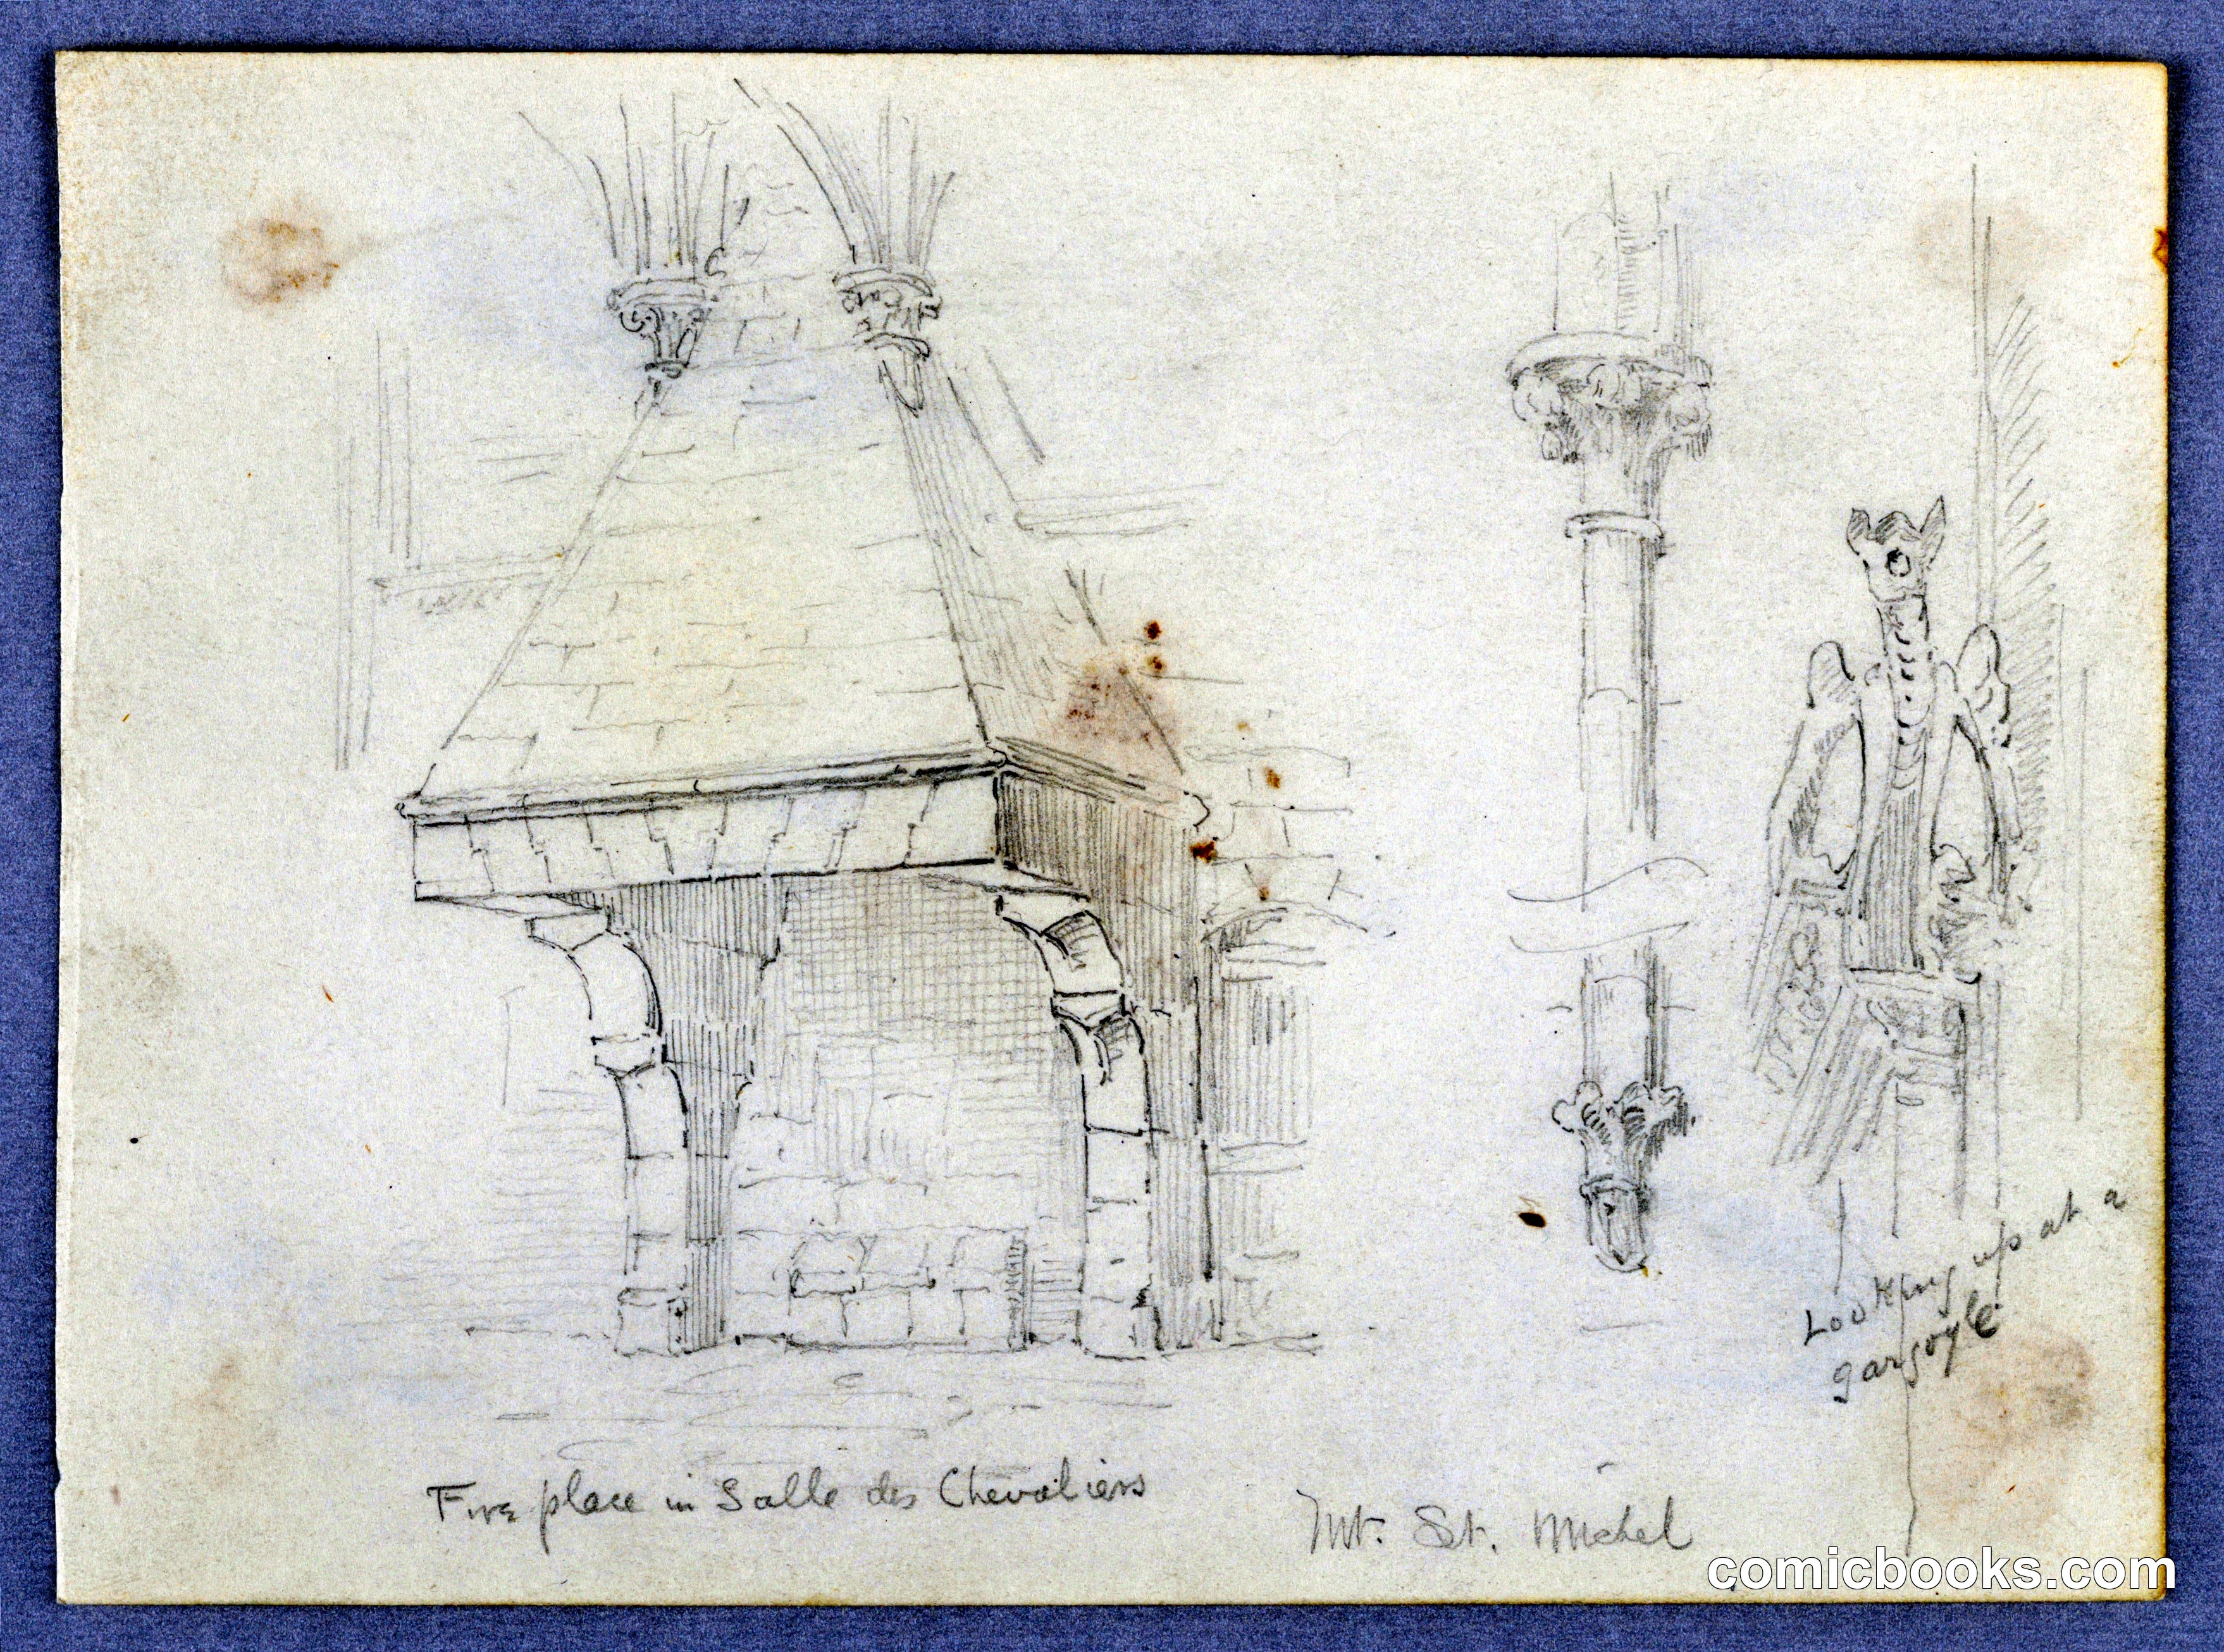 Fire place in Salle des Chevaliers
Mt. St. Michel
Looking up at a
gargoyle
comicbooks.com